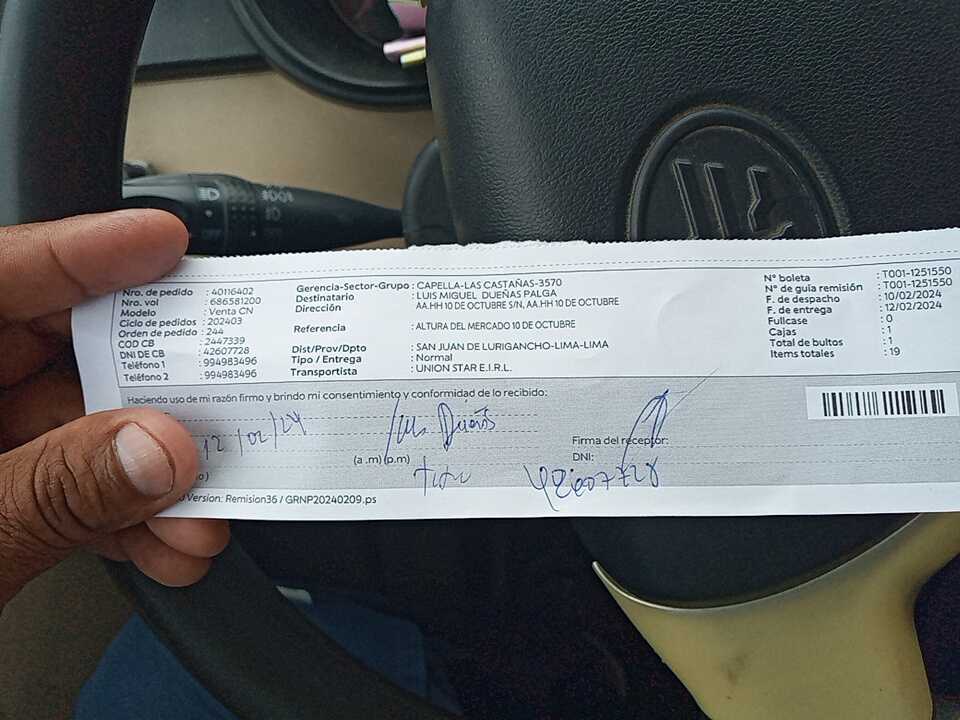 Nro. de pedido : 40116402
Nro. vol : 686581200
Modelo : Venta CN
Ciclo de pedidos : 202403
Orden de pedido : 244
COD CB : 2447339
DNI DE CB : 42607728
Teléfono 1 : 994983496
Teléfono 2 : 994983496
Gerencia-Sector-Grupo : CAPELLA-LAS CASTAÑAS-3570
Destinatario : LUIS MIGUEL DUEÑAS PALGA
Dirección : AA.HH 10 DE OCTUBRE S/N, AA.HH 10 DE OCTUBRE
Referencia : ALTURA DEL MERCADO 10 DE OCTUBRE
Dist/Prov/Dpto : SAN JUAN DE LURIGANCHO-LIMA-LIMA
Tipo / Entrega : Normal
Transportista : UNION STAR E.I.R.L.
N° boleta : T001-1251550
N° de guia remisión : T001-1251550
F. de despacho : 10/02/2024
F. de entrega : 12/02/2024
Fullcase : 0
Cajas : 1
Total de bultos : 1
Items totales : 19
Haciendo uso de mi razón firmo y brindo mi consentimiento y conformidad de lo recibido:
12/02/24
(a .m) (p.m)
Luis Dueñas
Firma del receptor:
DNI:
42607728
Version: Remision36 / GRNP20240209.ps